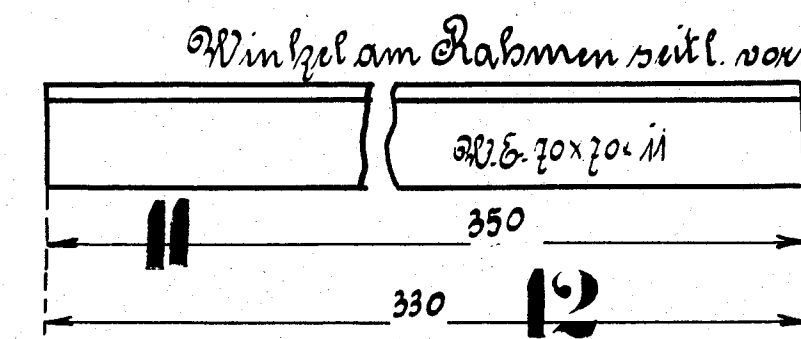 Winkel am Rahmen seitl. vor
W.E. 70x70x11
11
350
330
12